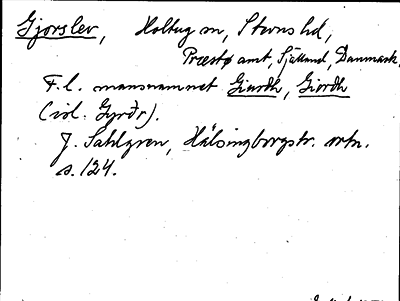 Gjorslev, Holtug sn, Stevns hd,
Præstø amt, Själland, Danmark.
F.l. mansnamnet Giurdh, Giordh
(isl. Gyrðr).
J. Sahlgren, Hälsingborgstr. ortn.
s. 124.